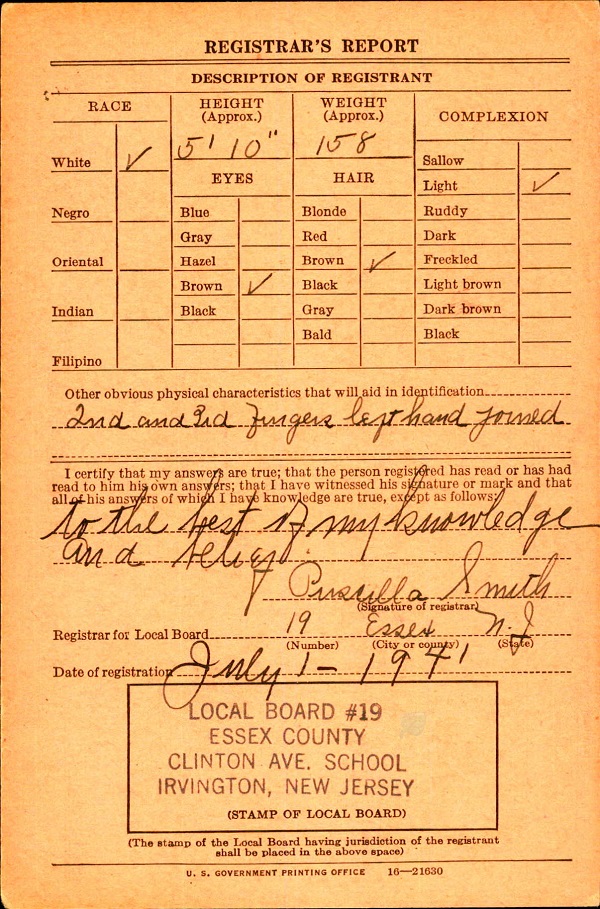 REGISTRAR'S REPORT
DESCRIPTION OF REGISTRANT
RACE
HEIGHT
(Approx.)
WEIGHT
(Approx.)
COMPLEXION
5' 10"
158
White ✓
EYES
HAIR
Sallow
Light ✓
Negro
Blue
Blonde
Ruddy
Gray
Red
Dark
Oriental
Hazel
Brown ✓
Freckled
Brown ✓
Black
Light brown
Indian
Black
Gray
Dark brown
Bald
Black
Filipino
Other obvious physical characteristics that will aid in identification
2nd and 3rd fingers left hand joined
I certify that my answers are true; that the person registered has read or has had
read to him his own answers; that I have witnessed his signature or mark and that
all of his answers of which I have knowledge are true, except as follows:
to the best of my knowledge
and belief.
Priscilla Smith
(Signature of registrar)
Registrar for Local Board 19 Essex N.J
(Number) (City or county) (State)
Date of registration July 1 - 1941
LOCAL BOARD #19
ESSEX COUNTY
CLINTON AVE. SCHOOL
IRVINGTON, NEW JERSEY
(STAMP OF LOCAL BOARD)
(The stamp of the Local Board having jurisdiction of the registrant
shall be placed in the above space)
U. S. GOVERNMENT PRINTING OFFICE 16—21630